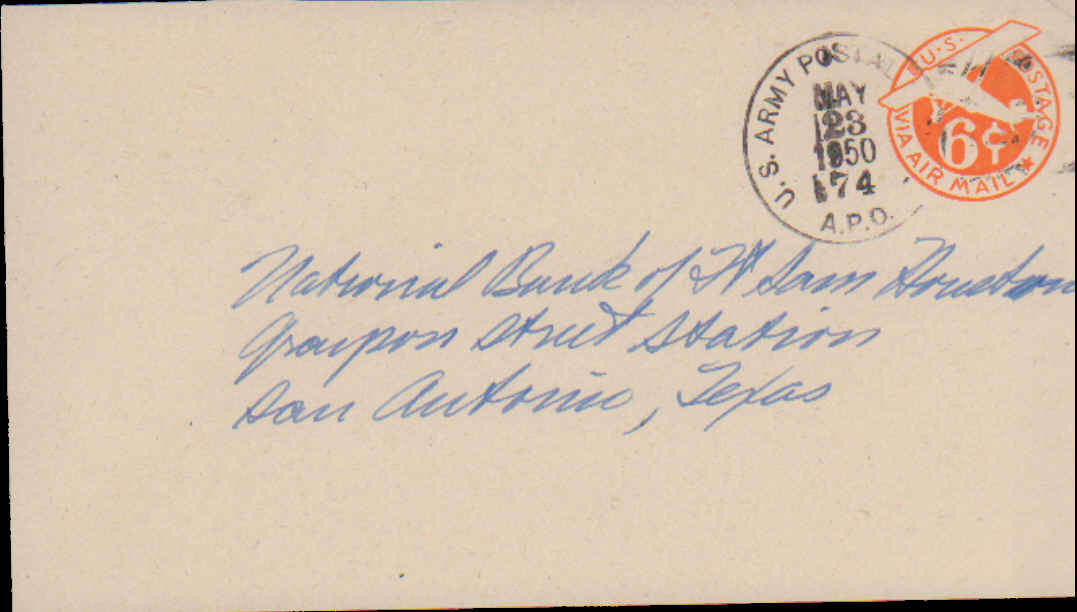 U.S. ARMY POSTAL
MAY
23
1950
74
A.P.O.
U.S. POSTAGE
6¢
VIA AIR MAIL
National Bank of Ft Sam Houston
Graypon Street Station
San Antonio, Texas